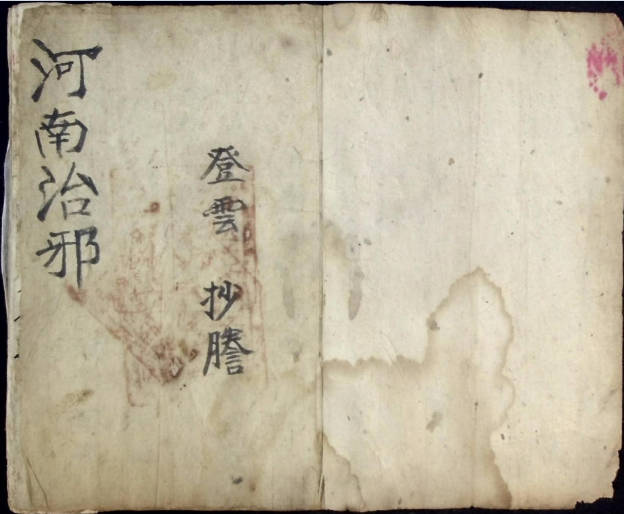 河南治邪
登雲 抄謄